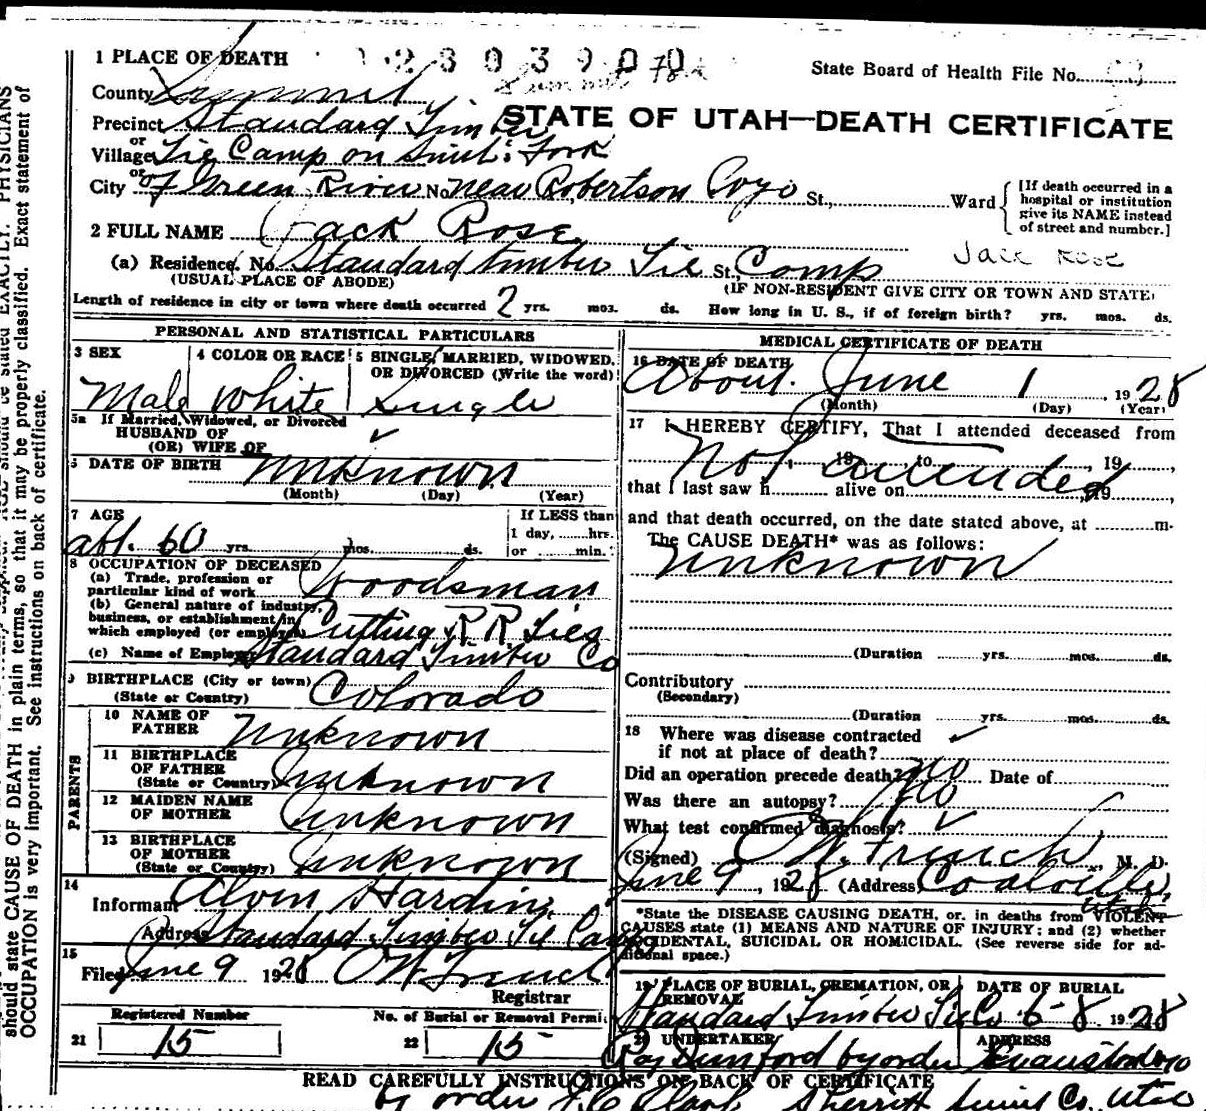 1 PLACE OF DEATH
State Board of Health File No.
County Summit
STATE OF UTAH—DEATH CERTIFICATE
Precinct Standard Timber
or
Village Tie Camp on Smith's Fork
or
City of Green River No. near Robertson Wyo St., Ward
[If death occurred in a hospital or institution give its NAME instead of street and number.]
2 FULL NAME Jack Rose
Jack Rose
(a) Residence. No. Standard timber Tie St., Camp
(USUAL PLACE OF ABODE) (IF NON-RESIDENT GIVE CITY OR TOWN AND STATE)
Length of residence in city or town where death occurred 2 yrs. mos. ds. How long in U. S., if of foreign birth? yrs. mos. ds.
PERSONAL AND STATISTICAL PARTICULARS
3 SEX Male
4 COLOR OR RACE White
5 SINGLE, MARRIED, WIDOWED, OR DIVORCED (Write the word) Single
5a If Married, Widowed, or Divorced
HUSBAND OF
(OR) WIFE OF
6 DATE OF BIRTH unknown
(Month) (Day) (Year)
7 AGE abt. 60 yrs. mos. ds.
If LESS than
1 day, hrs.
or min.
8 OCCUPATION OF DECEASED
(a) Trade, profession or particular kind of work Woodsman
(b) General nature of industry, business, or establishment in which employed (or employer) Cutting R R Ties
(c) Name of Employer Standard Timber Co
9 BIRTHPLACE (City or town) Colorado
(State or Country)
PARENTS
10 NAME OF FATHER Unknown
11 BIRTHPLACE OF FATHER (State or Country) Unknown
12 MAIDEN NAME OF MOTHER Unknown
13 BIRTHPLACE OF MOTHER (State or Country) Unknown
14
Informant Alvin Harding
Address Standard Timber Tie Camp
15
Filed June 9 1928 O W French
Registrar
Registered Number
21 15
No. of Burial or Removal Permit
22 15
MEDICAL CERTIFICATE OF DEATH
16 DATE OF DEATH
About June 1 1928
(Month) (Day) (Year)
17 I HEREBY CERTIFY, That I attended deceased from
Not attended , 19 to , 19 ,
that I last saw h alive on , 19 ,
and that death occurred, on the date stated above, at m.
The CAUSE DEATH* was as follows:
unknown
(Duration yrs. mos. ds.
Contributory
(Secondary)
(Duration yrs. mos. ds.
18 Where was disease contracted
if not at place of death?
Did an operation precede death? no Date of
Was there an autopsy? No
What test confirmed diagnosis?
(Signed) O W. French , M. D.
June 9 , 1928 (Address) Coalville, Utah
*State the DISEASE CAUSING DEATH, or, in deaths from VIOLENT
CAUSES state (1) MEANS AND NATURE OF INJURY; and (2) whether
ACCIDENTAL, SUICIDAL OR HOMICIDAL. (See reverse side for additional space.)
19 PLACE OF BURIAL, CREMATION, OR REMOVAL
Standard Timber Tie Co
DATE OF BURIAL
6-8 1928
20 UNDERTAKER
Roy Dunford by order
ADDRESS
Evanston Wyo
READ CAREFULLY INSTRUCTIONS ON BACK OF CERTIFICATE
by order J. C Clark Sherriff Sumit Co. Utah
should state CAUSE OF DEATH in plain terms, so that it may be properly classified. Exact statement of
OCCUPATION is very important. See instructions on back of certificate.